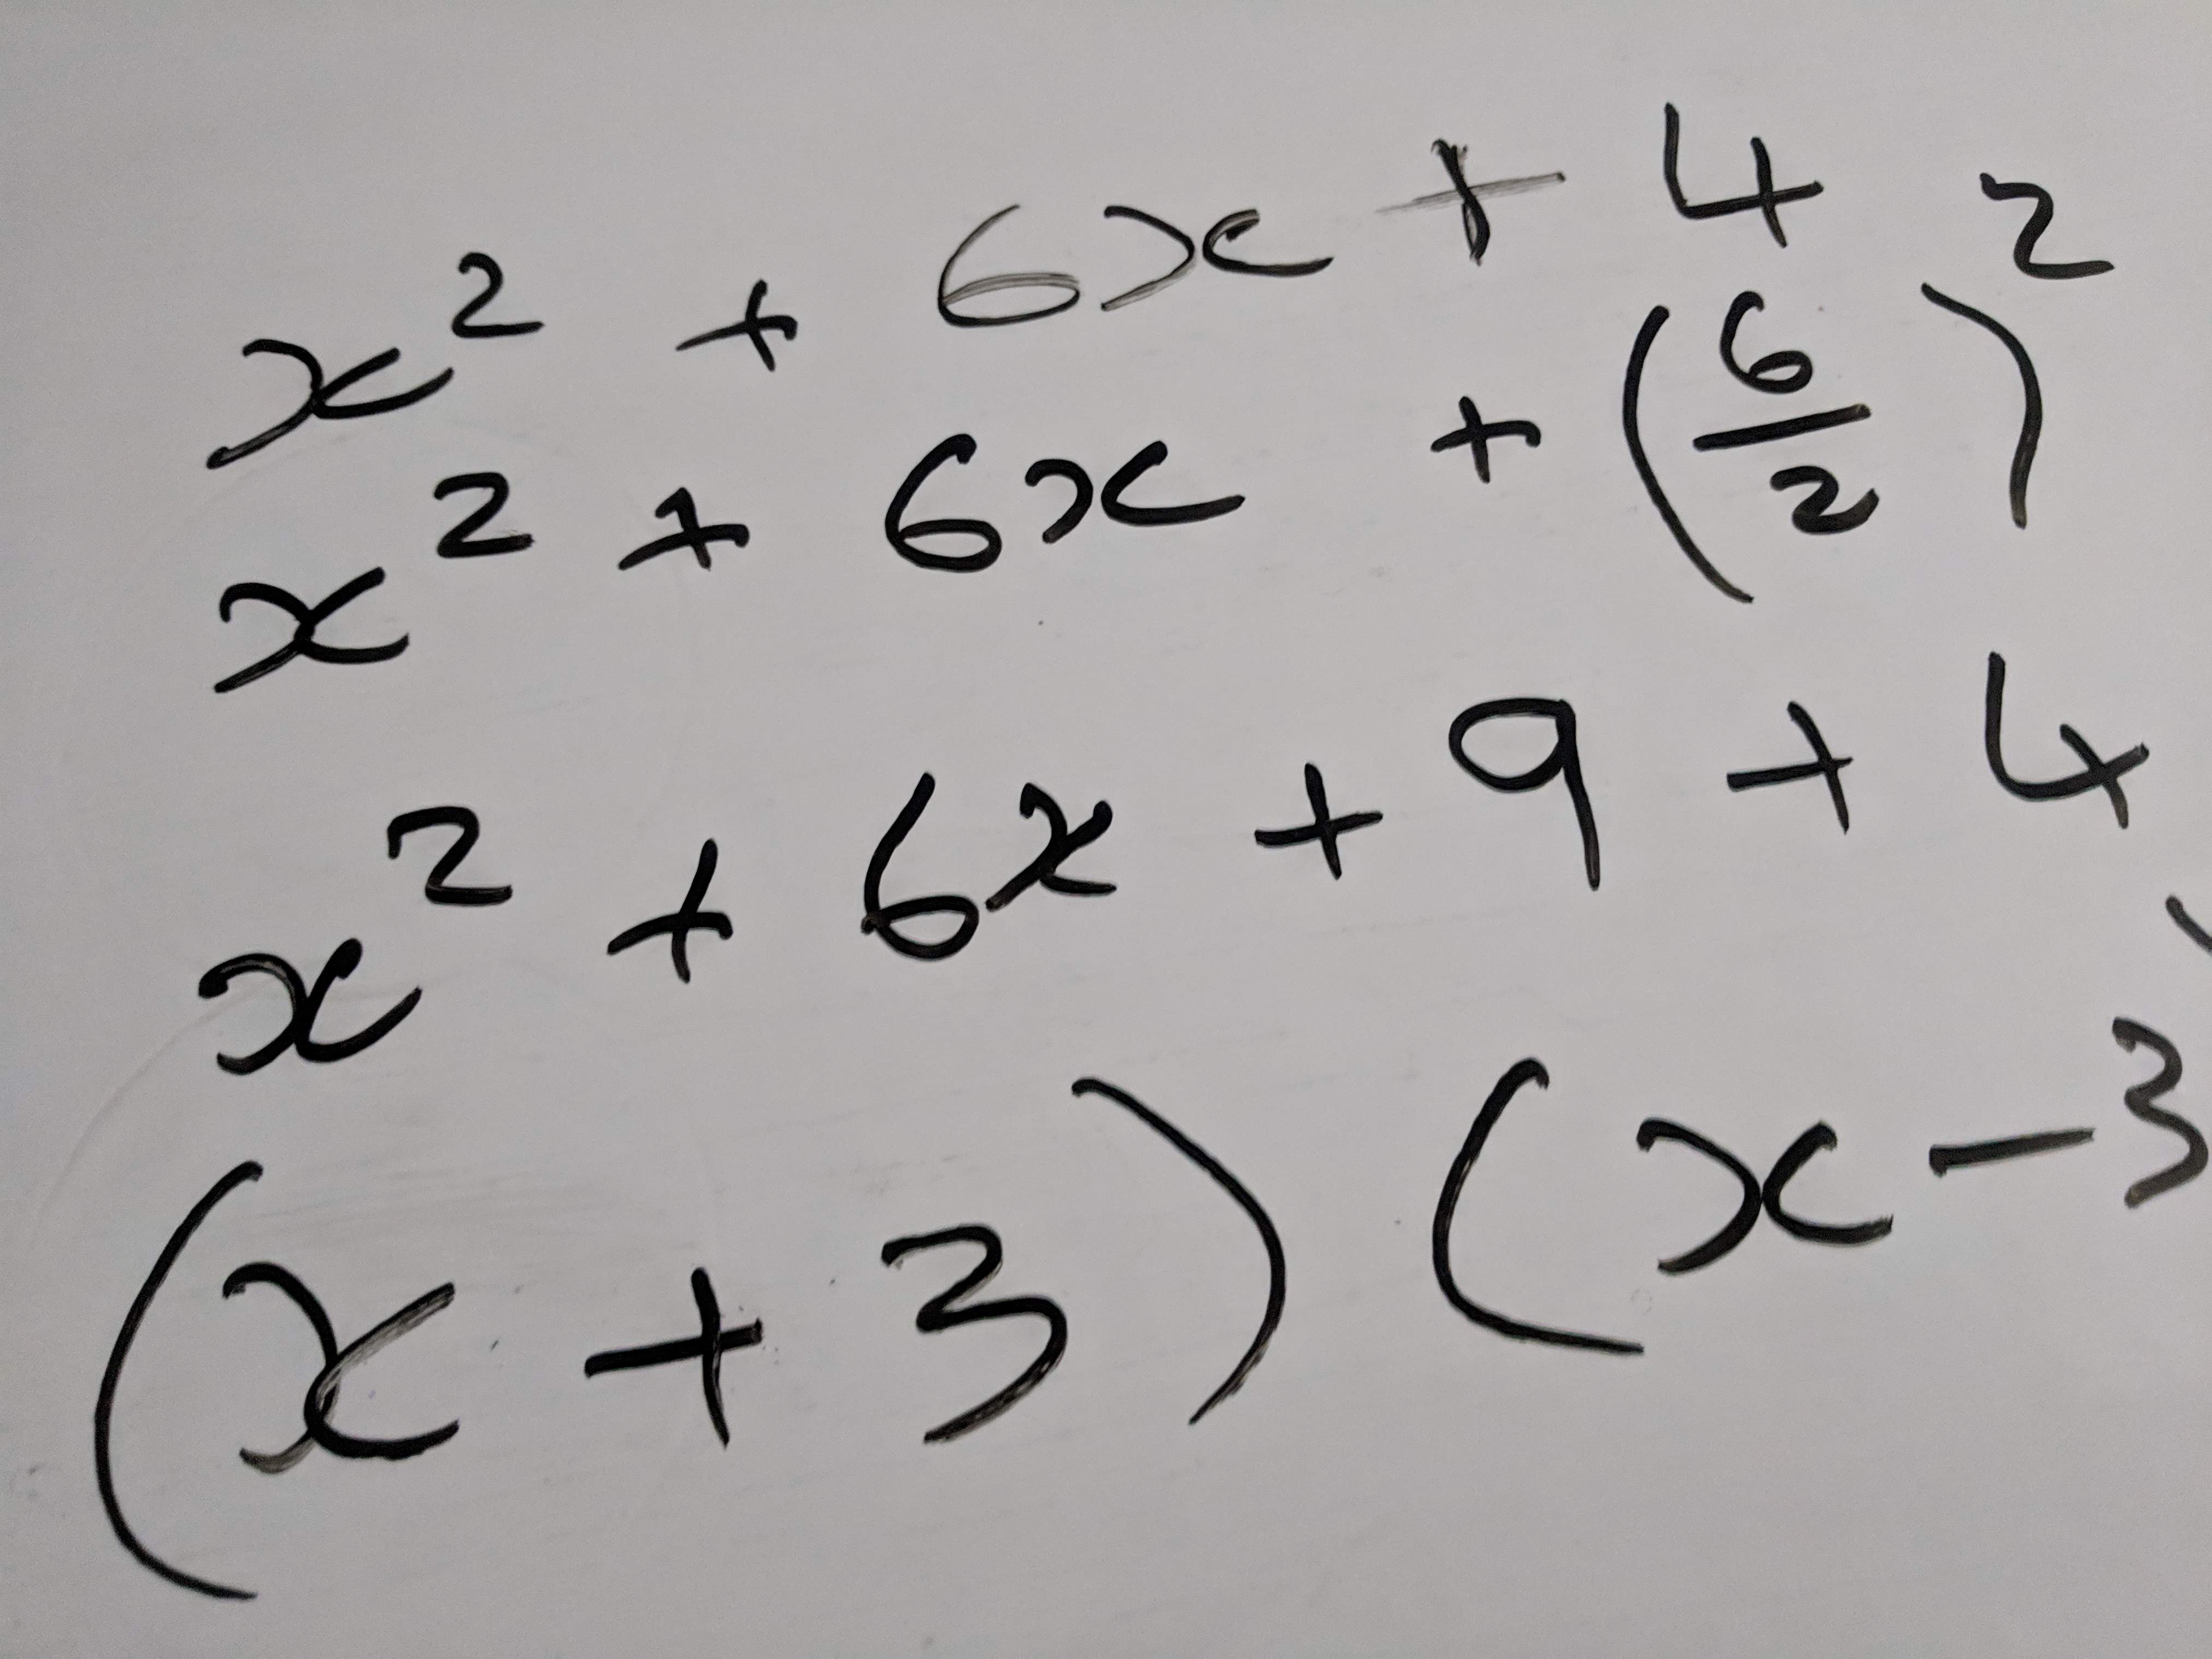 x² + 6x + 4
x² + 6x + (6/2)²
x² + 6x + 9 + 4
(x + 3) (x - 3)